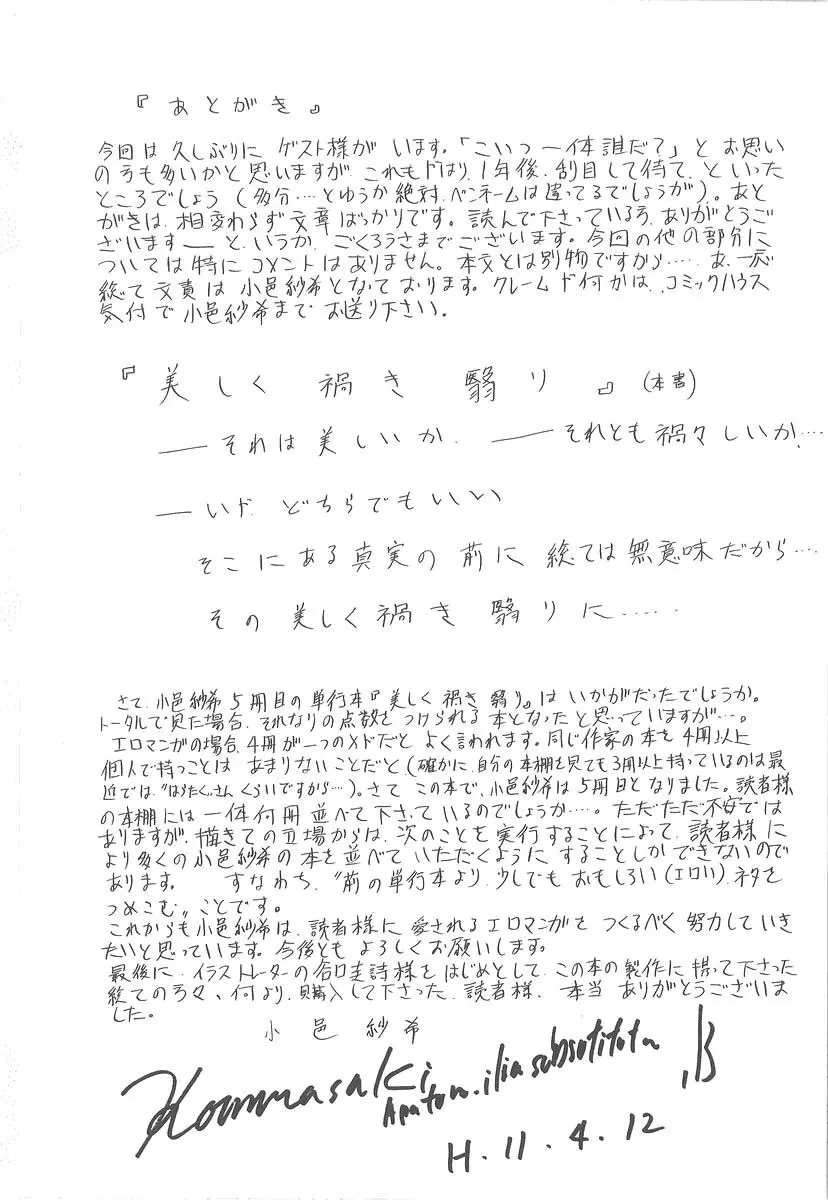 『あとがき』
今回は久しぶりに ゲスト様が います。「こいつ 一体 誰だ?」と お思い
の方も多いかと思いますが これもやはり、1年後、刮目して待て、といった
ところでしょう(多分‥‥とゆうか絶対、ペンネームは違ってるでしょうが)。あと
がきは、相変わらず文章ばっかりです。読んで下さっている方、ありがとうご
ざいます――と、いうか、ごくろうさまでございます。今回の他の部分に
ついては特にコメントはありません。本文とは別物ですから‥‥。あ、一応
総て文責は小邑紗希となっております。クレームや何かは、コミックハウス
気付で小邑紗希まで お送り下さい。
『美しく 禍き 翳り』(本書)
――それは美しいか、――それとも禍々しいか‥‥
――いや、どちらでもいい
そこにある真実の前に 総ては無意味だから‥‥
その美しく禍き翳りに‥‥‥
さて、小邑紗希5冊目の単行本『美しく禍き翳り』は いかがだったでしょうか。
トータルで見た場合、それなりの点数をつけられる本となったと思っていますが‥‥。
エロマンガの場合、4冊が一つのメドだと よく言われます。同じ作家の本を4冊以上
個人で持つことは あまりないことだと(確かに、自分の本棚を見ても3冊以上持っているのは最
近では くらいですから‥‥)。さて この本で、小邑紗希は5冊目となりました。読者様
の本棚には一体何冊並べて下さっているのでしょうか‥‥。ただただ不安では
ありますが、描きての立場からは、次のことを実行することによって、読者様に
より多くの小邑紗希の本を並べていただくようにすることしかできないので
あります。 すなわち、“前の単行本より、少しでもおもしろい(エロい)ネタを
つめこむ”ことです。
これからも小邑紗希は、読者様に愛されるエロマンガをつくるべく努力していき
たいと思っています。今後とも よろしくお願いします。
最後に、イラストレーターの 様をはじめとして、この本の製作に携って下さった
総ての方々、何より、購入して下さった、読者様、本当 ありがとうございま
した。
小邑紗希
Komurasaki
H.11.4.12